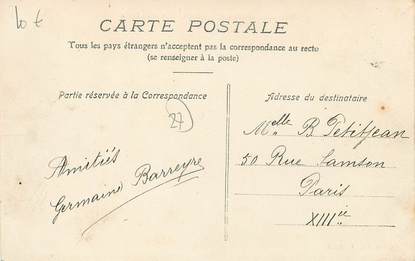 10 €
CARTE POSTALE
Tous les pays étrangers n'acceptent pas la correspondance au recto
(se renseigner à la poste)
Partie réservée à la Correspondance
27
Amitiés
Germaine Barreyre
Adresse du destinataire
Melle B Petitjean
50 Rue Samson
Paris
XIIIe